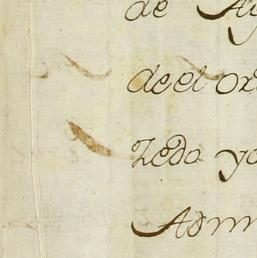 de Ay
de el or
zedo yo
Adm